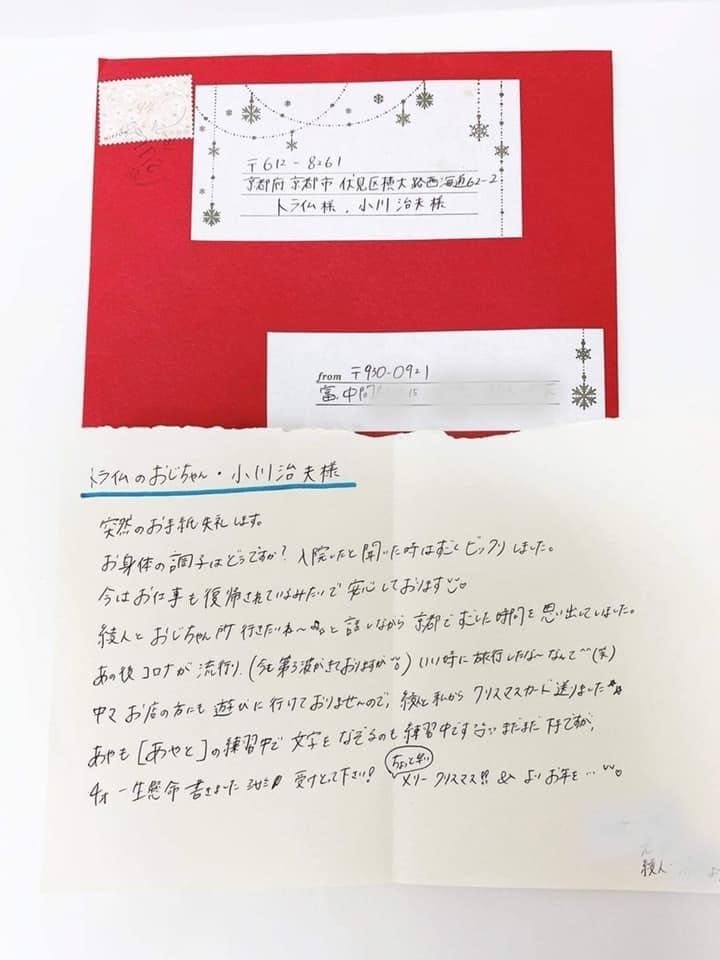 〒612-8261
京都府京都市伏見区横大路西海道62-2
トライム様.小川治夫様
from 〒930-0921
富.中
トライムのおじちゃん・小川治夫様
突然のお手紙失礼します。
お身体の調子はどうですか?入院したと聞いた時はすごくビックリしました。
今はお仕事も復帰されているみたいで安心しております
綾人とおじちゃん所行きたいね〜と話しながら京都ですごした時間を思い出していました。
あの後コロナが流行り、(今も第3波がきておりますが)いい時に旅行したな〜なんて(笑)
中々お店の方にも遊びに行けておりませんので、綾人と私からクリスマスカード送りました
あやも[あやと]の練習中で文字をなぞるのも練習中です まだまだ下手ですが、
4才一生懸命書きました 受けとって下さい!
ちょっと早い
メリークリスマス!! & よいお年を…
綾人